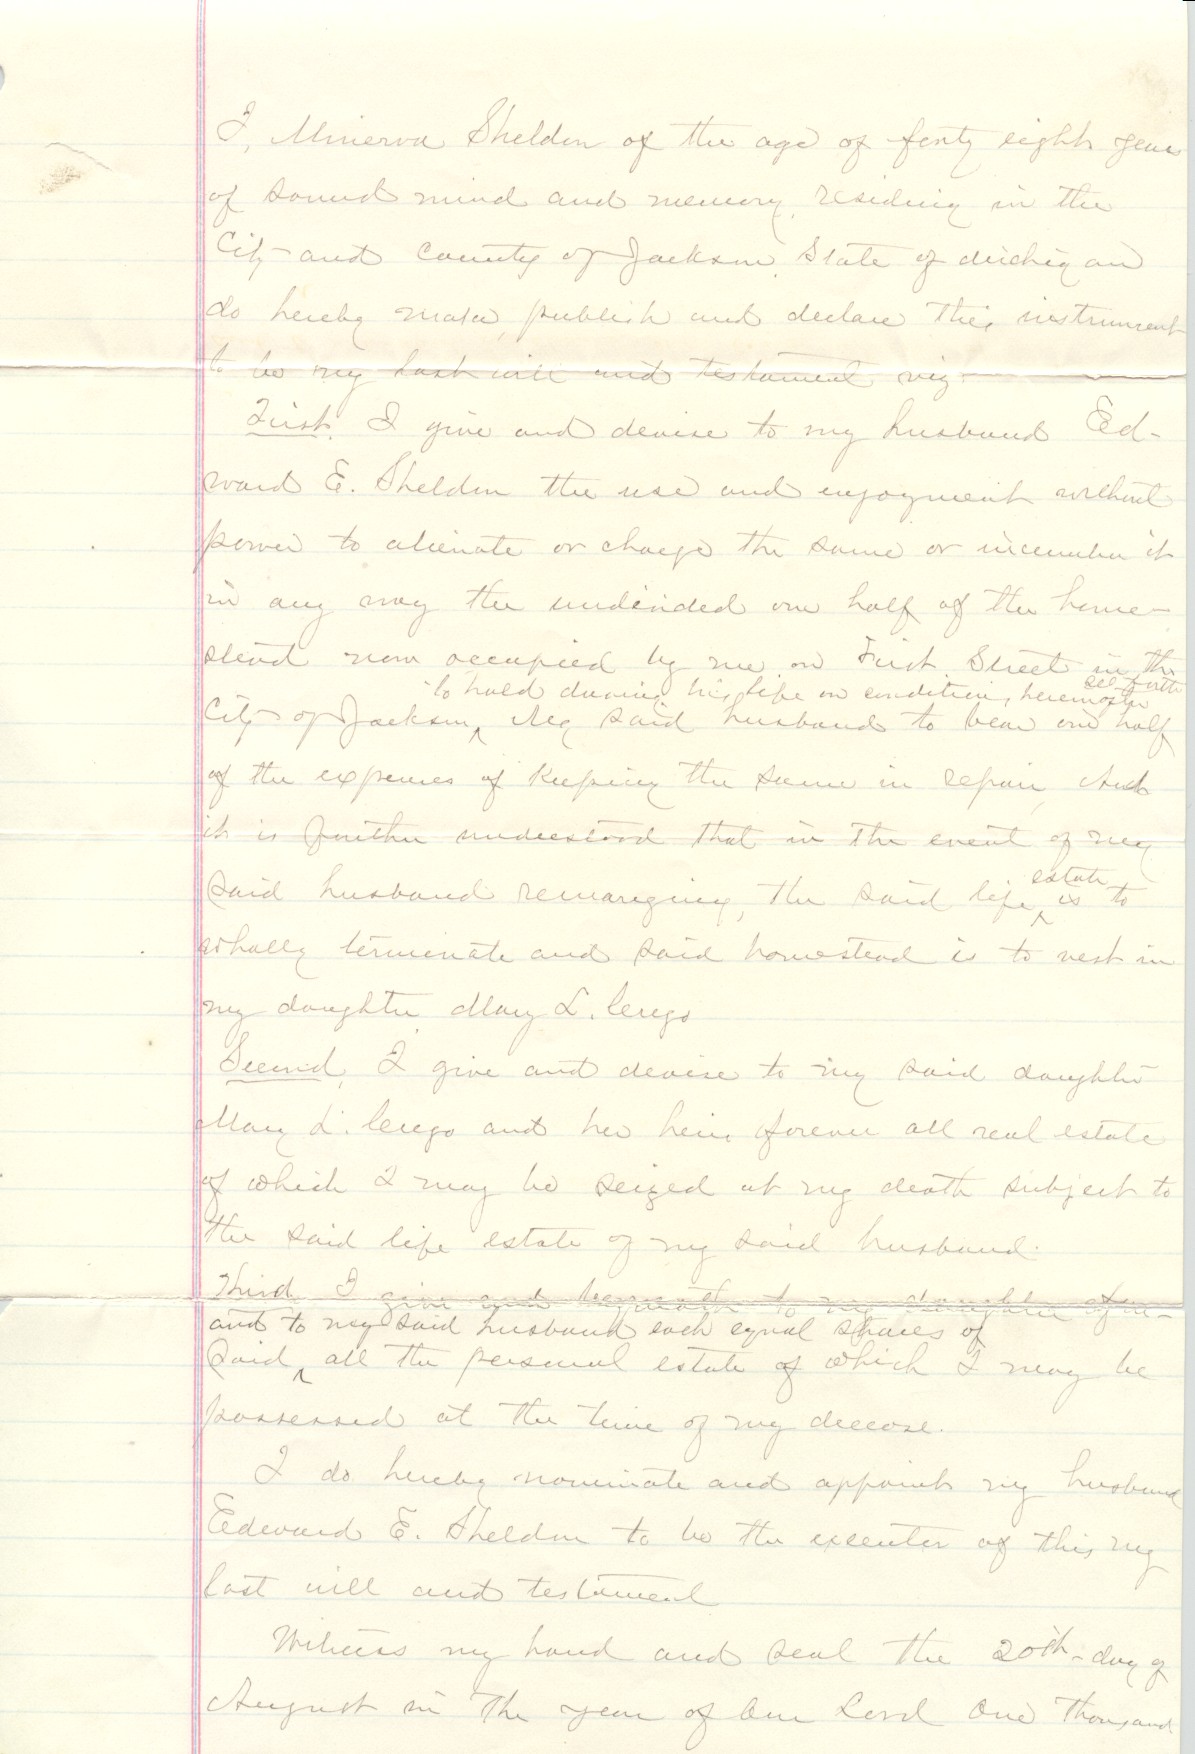 I, Minerva Sheldon of the age of forty eight years
of sound mind and memory, residing in the
City and County of Jackson State of Michigan
do hereby make, publish and declare this instrument
to be my last will and testament viz
First, I give and devise to my husband Ed-
ward E. Sheldon the use and enjoyment without
power to alienate or charge the same or incumber it
in any way the undivided one half of the home-
stead now occupied by me on First Street in the
to hold during his life on condition, herein set forth
City of Jackson, My said husband to bear one half
of the expenses of keeping the same in repair, And
it is further understood that in the event of my
estate
said husband remarrying, the said life is to
wholly terminate and said homestead is to vest in
my daughter Mary L.
Second, I give and devise to my said daughter
Mary L. and her heirs forever all real estate
of which I may be seized at my death subject to
the said life estate of my said husband.
Third I give and bequeath to my daughter afore-
and to my said husband each equal shares of
said all the personal estate of which I may be
possessed at the time of my decease.
I do hereby nominate and appoint my husband
Edward E. Sheldon to be the executor of this my
last will and testament
Witness my hand and seal the 20th day of
August in the year of Our Lord One Thousand